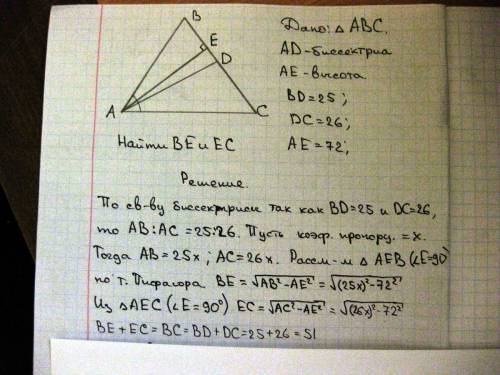 B
E
D
A
C
Дано: △ ABC.
AD-биссектриа
AE-высота
BD=25;
DC=26;
AE=72;
Найти BE и EC
Решение.
По св-ву биссектрисы так как BD=25 и DC=26,
то AB:AC=25:26. Пусть коэф. пропору. =x.
Тогда AB=25x; AC=26x. Рассм-м △ AEB (∠E=90°)
по т. Пифагора BE=√AB²-AE² = √(25x)²-72²
Из △AEC (∠E=90°) EC=√AC²-AE² = √(26x)²-72²
BE+EC=BC=BD+DC=25+26=51